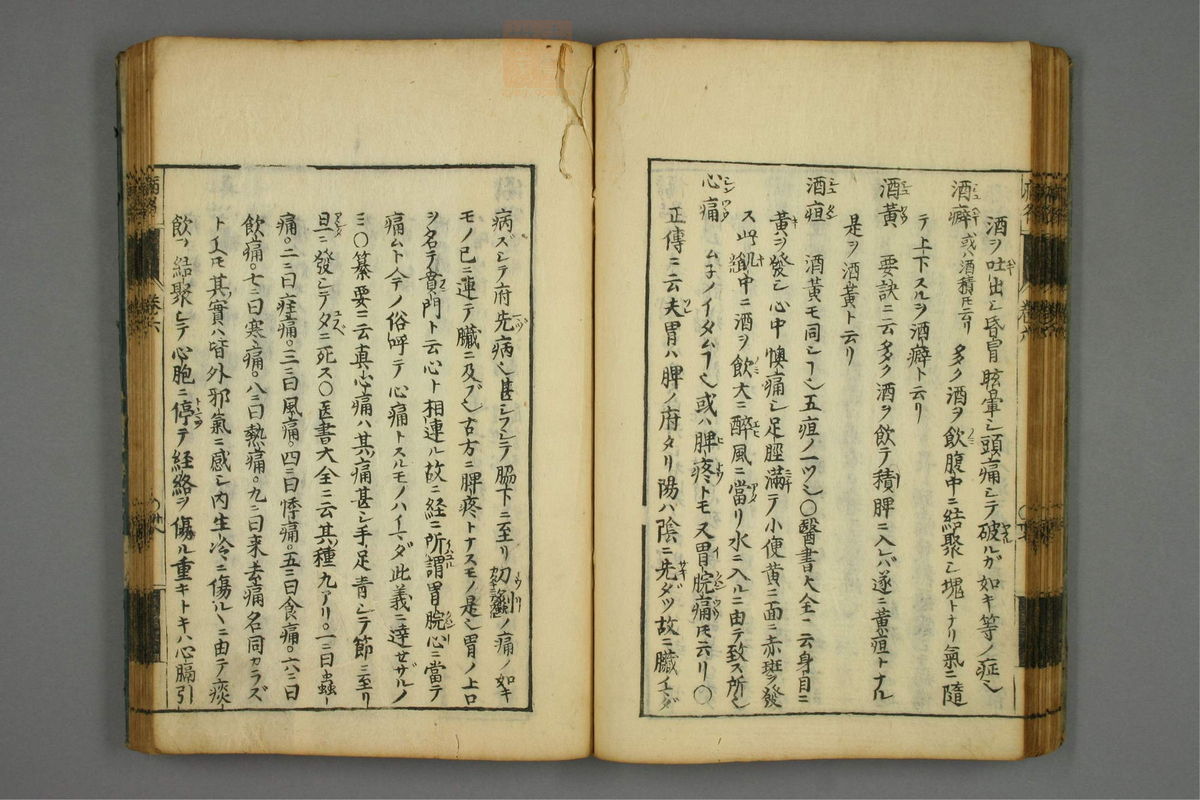 酒ヲ吐出シ昏冒眩暈シ頭痛シテ破ルガ如キ等ノ症ナリ
酒癖 或ハ酒積トモ云リ 多ク酒ヲ飲腹中ニ結聚シ塊トナリ氣ニ隨
テ上下スルヲ酒癖ト云リ
酒黄 要訣ニ云多ク酒ヲ飲テ積脾ニ入レバ遂ニ黄疸トナル
是ヲ酒黄ト云リ
酒疸 酒黄モ同シフ也五疸ノ一ツ也○醫書大全ニ云身目ニ
黄ヲ發シ心中懊痛シ足脛滿テ小便黄ニ面ニ赤斑ヲ發
ス此飢中ニ酒ヲ飲大ニ醉風ニ當リ水ニ入ルニ由テ致ス所也
心痛 ム子ノイタムフ也或ハ脾疼トモ又胃脘痛トモ云リ○
正傳ニ云夫胃ハ脾ノ府タリ陽ハ陰ニ先ダツ故ニ臓イマダ
病ズシテ府先病也甚シフシテ脇下ニ至リ刀劙ノ痛ノ如キ
モノ已ニ連テ臓ニ及ブ也古方ニ脾疼トナスモノ是也胃ノ上口
ヲ名テ賁門ト云心ト相連ル故ニ経ニ所謂胃脘心ニ當テ
痛ムト今ノ俗呼テ心痛トスルモノハイマダ此義ニ達セザルノ
ミ○纂要ニ云真心痛ハ其痛甚シ手足青シテ節ニ至リ
旦ニ發シテ夕ニ死ス○医書大全ニ云其種九アリ○一ニ曰蟲
痛。二ニ曰疰痛。三ニ曰風痛。四ニ曰悸痛。五ニ曰食痛。六ニ曰
飲痛。七ニ曰寒痛。八ニ曰熱痛。九ニ曰来去痛名同カラズ
トイヘモ其實ハ皆外邪氣ニ感シ内生冷ニ傷ルヽニ由テ痰
飲ヲ結聚シテ心胞ニ停テ経絡ヲ傷ル重キトキハ心膈引
卷六